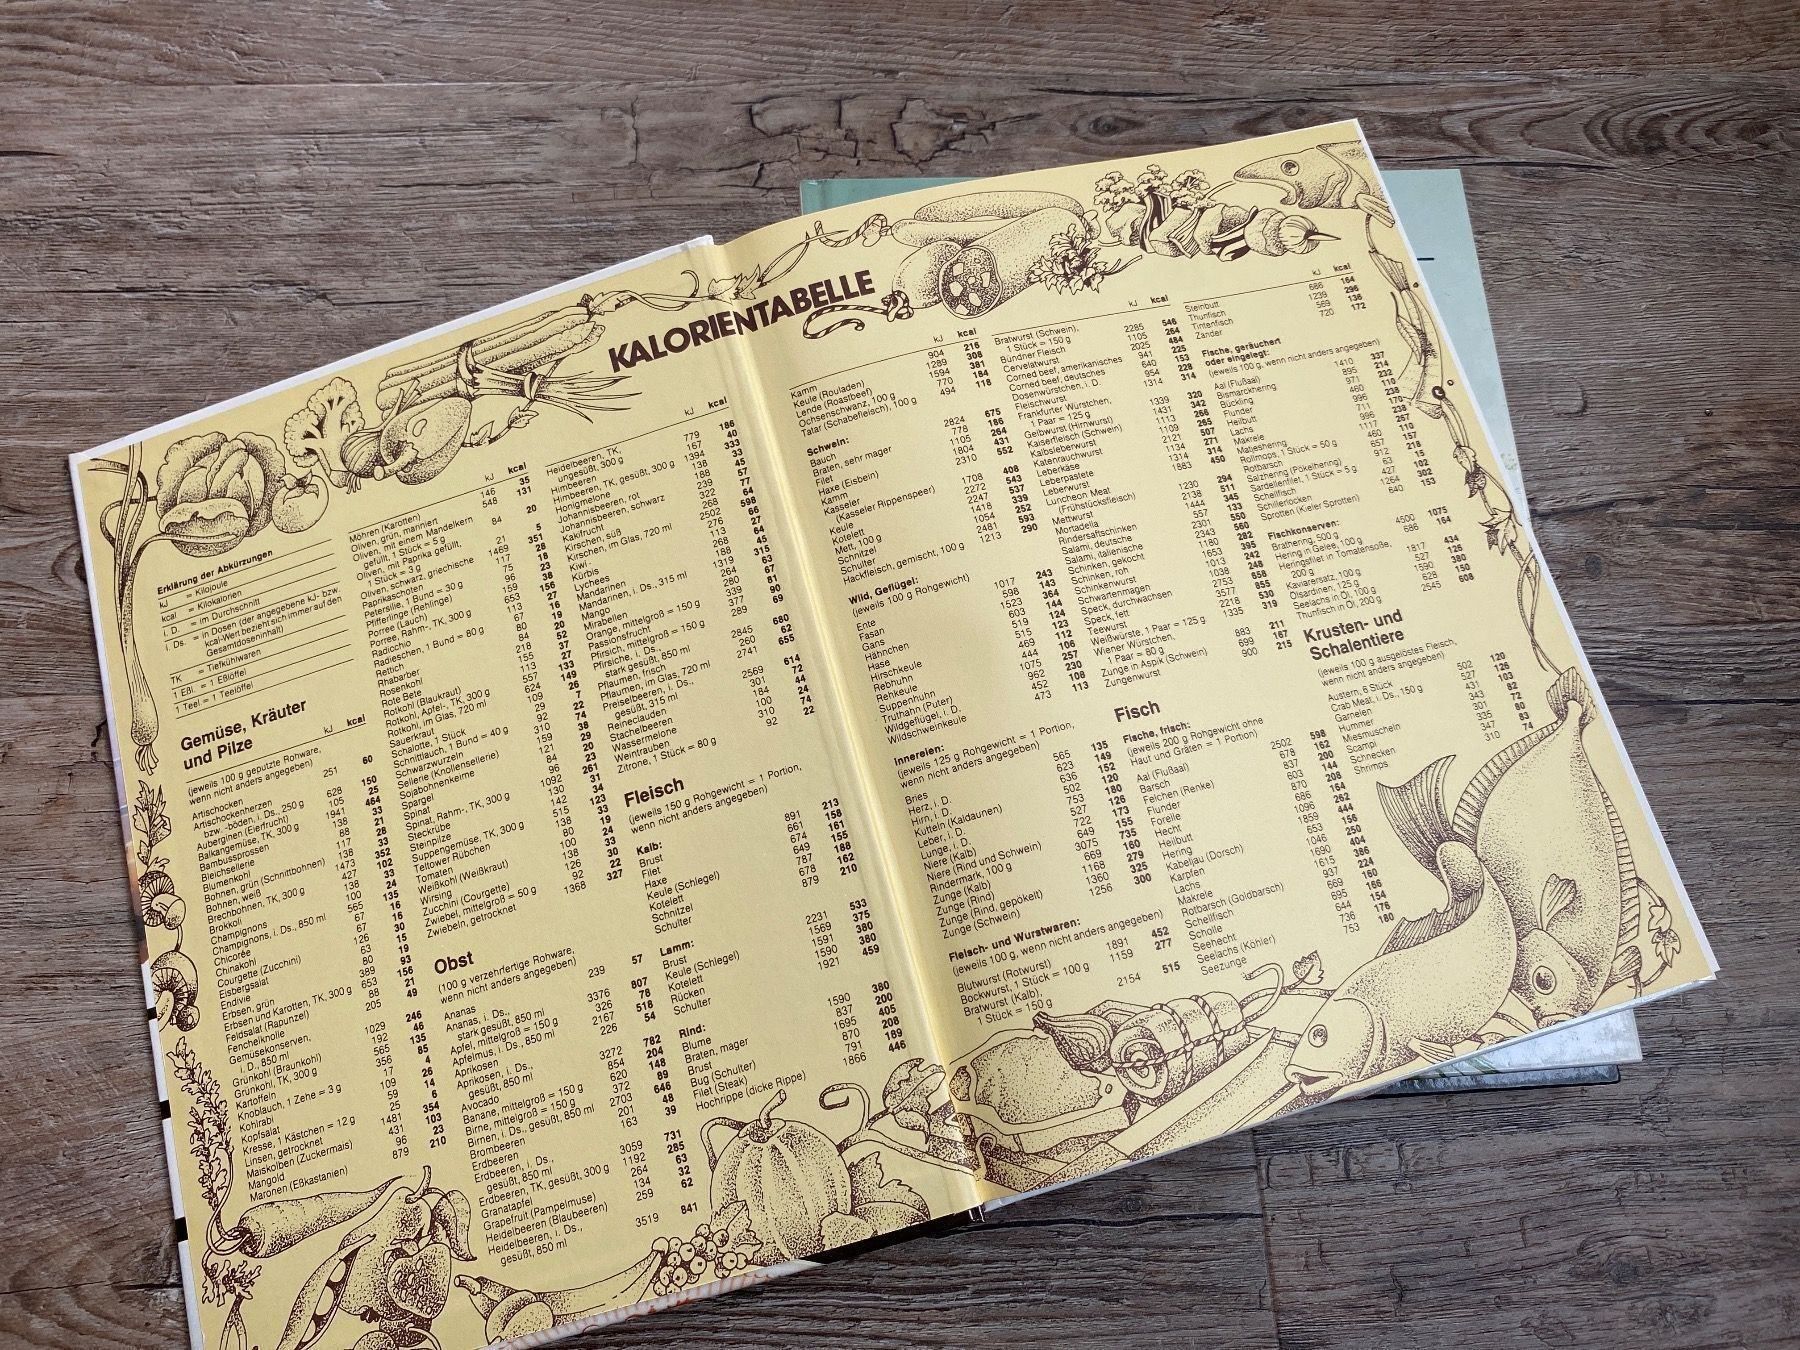 KALORIENTABELLE
Erklärung der Abkürzungen
kJ = Kilojoule
kcal = Kilokalorien
i. D. = im Durchschnitt
i. Ds. = in Dosen (der angegebene kJ- bzw.
kcal-Wert bezieht sich immer auf den
Gesamtdoseninhalt)
TK = Tiefkühlwaren
1 Eßl. = 1 Eßlöffel
1 Teel = 1 Teelöffel
Gemüse, Kräuter
und Pilze
kJ kcal
(jeweils 100 g geputzte Rohware,
wenn nicht anders angegeben)
Artischocken 251 60
Artischockenherzen
bzw. -böden, i. D., 250 g 628 150
Auberginen (Eierfrucht) 105 25
Balkangemüse, TK, 300 g 1941 464
Bambussprossen 138 33
Bleichsellerie 88 21
Blumenkohl 117 28
Bohnen, grün (Schnittbohnen) 138 33
Bohnen, weiß 1473 352
Brechbohnen, TK, 300 g 427 102
Brokkoli 138 33
Champignons 100 24
Champignons, i. Ds., 850 ml 565 135
Chicorée 67 16
Chinakohl 67 16
Courgette (Zucchini) 126 30
Eisbergsalat 63 15
Endivie 80 19
Erbsen, grün 389 93
Erbsen und Karotten, TK, 300 g 653 156
Feldsalat (Rapunzel) 88 21
Fenchelknolle 205 49
Gemüsekonserven,
i. D., 850 ml 1029 246
Grünkohl (Braunkohl) 192 46
Grünkohl, TK, 300 g 565 135
Kartoffeln 356 85
Knoblauch, 1 Zehe = 3 g 17 4
Kohlrabi 109 26
Kopfsalat 59 14
Kresse, 1 Kästchen = 12 g 25 6
Linsen, getrocknet 1481 354
Maiskolben (Zuckermais) 431 103
Mangold 96 23
Maronen (Eßkastanien) 879 210
kJ kcal
Möhren (Karotten) 146 35
Oliven, grün, mariniert 548 131
Oliven, mit einem Mandelkern
gefüllt, 1 Stück = 5 g 84 20
Oliven, mit Paprika gefüllt,
1 Stück = 3 g 21 5
Oliven, schwarz, griechische 1469 351
Paprikaschoten 117 28
Petersilie, 1 Bund = 30 g 75 18
Pfifferlinge (Rehlinge) 96 23
Porree (Lauch) 159 38
Porree, Rahm-, TK, 300 g 653 156
Radicchio 113 27
Radieschen, 1 Bund = 80 g 67 16
Rettich 80 19
Rhabarber 84 20
Rosenkohl 218 52
Rote Bete 155 37
Rotkohl (Blaukraut) 113 27
Rotkohl, Apfel-, TK, 300 g 557 133
Rotkohl, im Glas, 720 ml 624 149
Sauerkraut 109 26
Schalotte, 1 Stück 29 7
Schnittlauch, 1 Bund = 40 g 92 22
Schwarzwurzeln 310 74
Sellerie (Knollensellerie) 159 38
Sojabohnenkeime 121 29
Spargel 84 20
Spinat 96 23
Spinat, Rahm-, TK, 300 g 1092 261
Steckrübe 130 31
Steinpilze 142 34
Suppengemüse, TK, 300 g 515 123
Teltower Rübchen 138 33
Tomaten 80 19
Weißkohl (Weißkraut) 100 24
Wirsing 138 33
Zucchini (Courgette) 126 30
Zwiebel, mittelgroß = 50 g 92 22
Zwiebeln, getrocknet 1368 327
Obst
(100 g verzehrfertige Rohware,
wenn nicht anders angegeben)
Ananas 239 57
Ananas, i. Ds.,
stark gesüßt, 850 ml 3376 807
Apfel, mittelgroß = 150 g 326 78
Apfelmus, i. Ds., 850 ml 2167 518
Aprikosen 226 54
Aprikosen, i. Ds.,
gesüßt, 850 ml 3272 782
Avocado 854 204
Banane, mittelgroß = 150 g 620 148
Birne, mittelgroß = 150 g 372 89
Birnen, i. Ds., gesüßt, 850 ml 2703 646
Brombeeren 201 48
Erdbeeren 163 39
Erdbeeren, i. Ds.,
gesüßt, 850 ml 3059 731
Erdbeeren, TK, gesüßt, 300 g 1192 285
Granatapfel 264 63
Grapefruit (Pampelmuse) 134 32
Heidelbeeren (Blaubeeren) 259 62
Heidelbeeren, i. Ds.,
gesüßt, 850 ml 3519 841
kJ kcal
Heidelbeeren, TK,
ungesüßt, 300 g 779 186
Himbeeren 167 40
Himbeeren, TK, gesüßt, 300 g 1394 333
Honigmelone 138 33
Johannisbeeren, rot 188 45
Johannisbeeren, schwarz 239 57
Kakifrucht 322 77
Kirschen, süß 268 64
Kirschen, im Glas, 720 ml 2502 598
Kiwi 276 66
Kürbis 113 27
Lychees 268 64
Mandarinen 188 45
Mandarinen, i. Ds., 315 ml 1319 315
Mango 264 63
Mirabellen 280 67
Orange, mittelgroß = 150 g 339 81
Passionsfrucht 377 90
Pfirsich, mittelgroß = 150 g 289 69
Pfirsiche, i. Ds.,
stark gesüßt, 850 ml 2845 680
Pflaumen, frisch 260 62
Pflaumen, im Glas, 720 ml 2741 655
Preiselbeeren, i. Ds.,
gesüßt, 315 ml 2569 614
Reineclauden 301 72
Stachelbeeren 184 44
Wassermelone 100 24
Weintrauben 310 74
Zitrone, 1 Stück = 80 g 92 22
Fleisch
(jeweils 150 g Rohgewicht = 1 Portion,
wenn nicht anders angegeben)
Kalb:
Brust 891 213
Filet 661 158
Haxe 674 161
Keule (Schlegel) 649 155
Kotelett 787 188
Schnitzel 678 162
Schulter 879 210
Lamm:
Brust 2231 533
Keule (Schlegel) 1569 375
Kotelett 1591 380
Rücken 1590 380
Schulter 1921 459
Rind:
Blume 1590 380
Braten, mager 837 200
Brust 1695 405
Bug (Schulter) 870 208
Filet (Steak) 791 189
Hochrippe (dicke Rippe) 1866 446
kJ kcal
Kamm 904 216
Keule (Rouladen) 1289 308
Lende (Roastbeef) 1594 381
Ochsenschwanz, 100 g 770 184
Tatar (Schabefleisch), 100 g 494 118
Schwein:
Bauch 2824 675
Braten, sehr mager 778 186
Filet 1105 264
Haxe (Eisbein) 1804 431
Kamm 2310 552
Kasseler
(Kasseler Rippenspeer) 1708 408
Keule 2272 543
Kotelett 2247 537
Mett, 100 g 1418 339
Schnitzel 1054 252
Schulter 2481 593
Hackfleisch, gemischt, 100 g 1213 290
Wild, Geflügel:
(jeweils 100 g Rohgewicht)
Ente 1017 243
Fasan 598 143
Gans 1523 364
Hähnchen 603 144
Hase 519 124
Hirschkeule 515 123
Rebhuhn 469 112
Rehkeule 444 106
Suppenhuhn 1075 257
Truthahn (Puter) 962 230
Wildgeflügel, i. D. 452 108
Wildschweinkeule 473 113
Innereien:
(jeweils 125 g Rohgewicht = 1 Portion,
wenn nicht anders angegeben)
Bries 565 135
Herz, i. D. 623 149
Hirn, i. D. 636 152
Kutteln (Kaldaunen) 502 120
Leber, i. D. 753 180
Lunge, i. D. 527 126
Niere (Kalb) 722 173
Niere (Rind und Schwein) 649 155
Rindermark, 100 g 3075 735
Zunge (Kalb) 669 160
Zunge (Rind) 1168 279
Zunge (Rind, gepökelt) 1360 325
Zunge (Schwein) 1256 300
Fleisch- und Wurstwaren:
(jeweils 100 g, wenn nicht anders angegeben)
Blutwurst (Rotwurst) 1891 452
Bockwurst, 1 Stück = 100 g 1159 277
Bratwurst (Kalb),
1 Stück = 150 g 2154 515
kJ kcal
Bratwurst (Schwein),
1 Stück = 150 g 2285 546
Bündner Fleisch 1105 264
Cervelatwurst 2025 484
Corned beef, amerikanisches 941 225
Corned beef, deutsches 640 153
Dosenwürstchen, i. D. 954 228
Fleischwurst 1314 314
Frankfurter Würstchen,
1 Paar = 125 g 1339 320
Gelbwurst (Hirnwurst) 1431 342
Kaiserfleisch (Schwein) 1113 266
Kalbsleberwurst 1109 265
Katenrauchwurst 2121 507
Leberkäse 1134 271
Leberpastete 1314 314
Leberwurst 1883 450
Luncheon Meat
(Frühstücksfleisch) 1230 294
Mettwurst 2138 511
Mortadella 1444 345
Rindersaftschinken 557 133
Salami, deutsche 2301 550
Salami, italienische 2343 560
Schinken, gekocht 1180 282
Schinken, roh 1653 395
Schinkenwurst 1013 242
Schwartenmagen 1038 248
Speck, durchwachsen 2753 658
Speck, fett 3577 855
Teewurst 2218 530
Weißwürste, 1 Paar = 125 g 1335 319
Wiener Würstchen,
1 Paar = 80 g 883 211
Zunge in Aspik (Schwein) 699 167
Zungenwurst 900 215
Fisch
Fische, frisch:
(jeweils 200 g Rohgewicht ohne
Haut und Gräten = 1 Portion)
Aal (Flußaal) 2502 598
Barsch 678 162
Felchen (Renke) 837 200
Flunder 603 144
Forelle 870 208
Hecht 686 164
Heilbutt 1096 262
Hering 1859 444
Kabeljau (Dorsch) 653 156
Karpfen 1046 250
Lachs 1690 404
Makrele 1615 386
Rotbarsch (Goldbarsch) 937 224
Schellfisch 669 160
Scholle 695 166
Seehecht 644 154
Seelachs (Köhler) 736 176
Seezunge 753 180
kJ kcal
Steinbutt 686 164
Thunfisch 1239 296
Tintenfisch 569 136
Zander 720 172
Fische, geräuchert
oder eingelegt:
(jeweils 100 g, wenn nicht anders angegeben)
Aal (Flußaal) 1410 337
Bismarckhering 895 214
Bückling 971 232
Flunder 460 110
Heilbutt 996 238
Lachs 711 170
Makrele 996 238
Matjeshering 1117 267
Rollmops, 1 Stück = 50 g 460 110
Rotbarsch 657 157
Salzhering (Pökelhering) 912 218
Sardellenfilet, 1 Stück = 5 g 63 15
Schellfisch 427 102
Schillerlocken 1264 302
Sprotten (Kieler Sprotten) 640 153
Fischkonserven:
Brathering, 500 g 4500 1075
Hering in Gelee, 100 g 686 164
Heringsfilet in Tomatensoße,
200 g 1817 434
Kaviarersatz, 100 g 527 126
Ölsardinen, 125 g 1590 380
Seelachs in Öl, 100 g 628 150
Thunfisch in Öl, 200 g 2545 608
Krusten- und
Schalentiere
(jeweils 100 g ausgelöstes Fleisch,
wenn nicht anders angegeben)
Austern, 6 Stück 502 120
Crab Meat, i. Ds., 150 g 527 126
Garnelen 431 103
Hummer 343 82
Miesmuscheln 301 72
Scampi 335 80
Schnecken 347 83
Shrimps 310 74